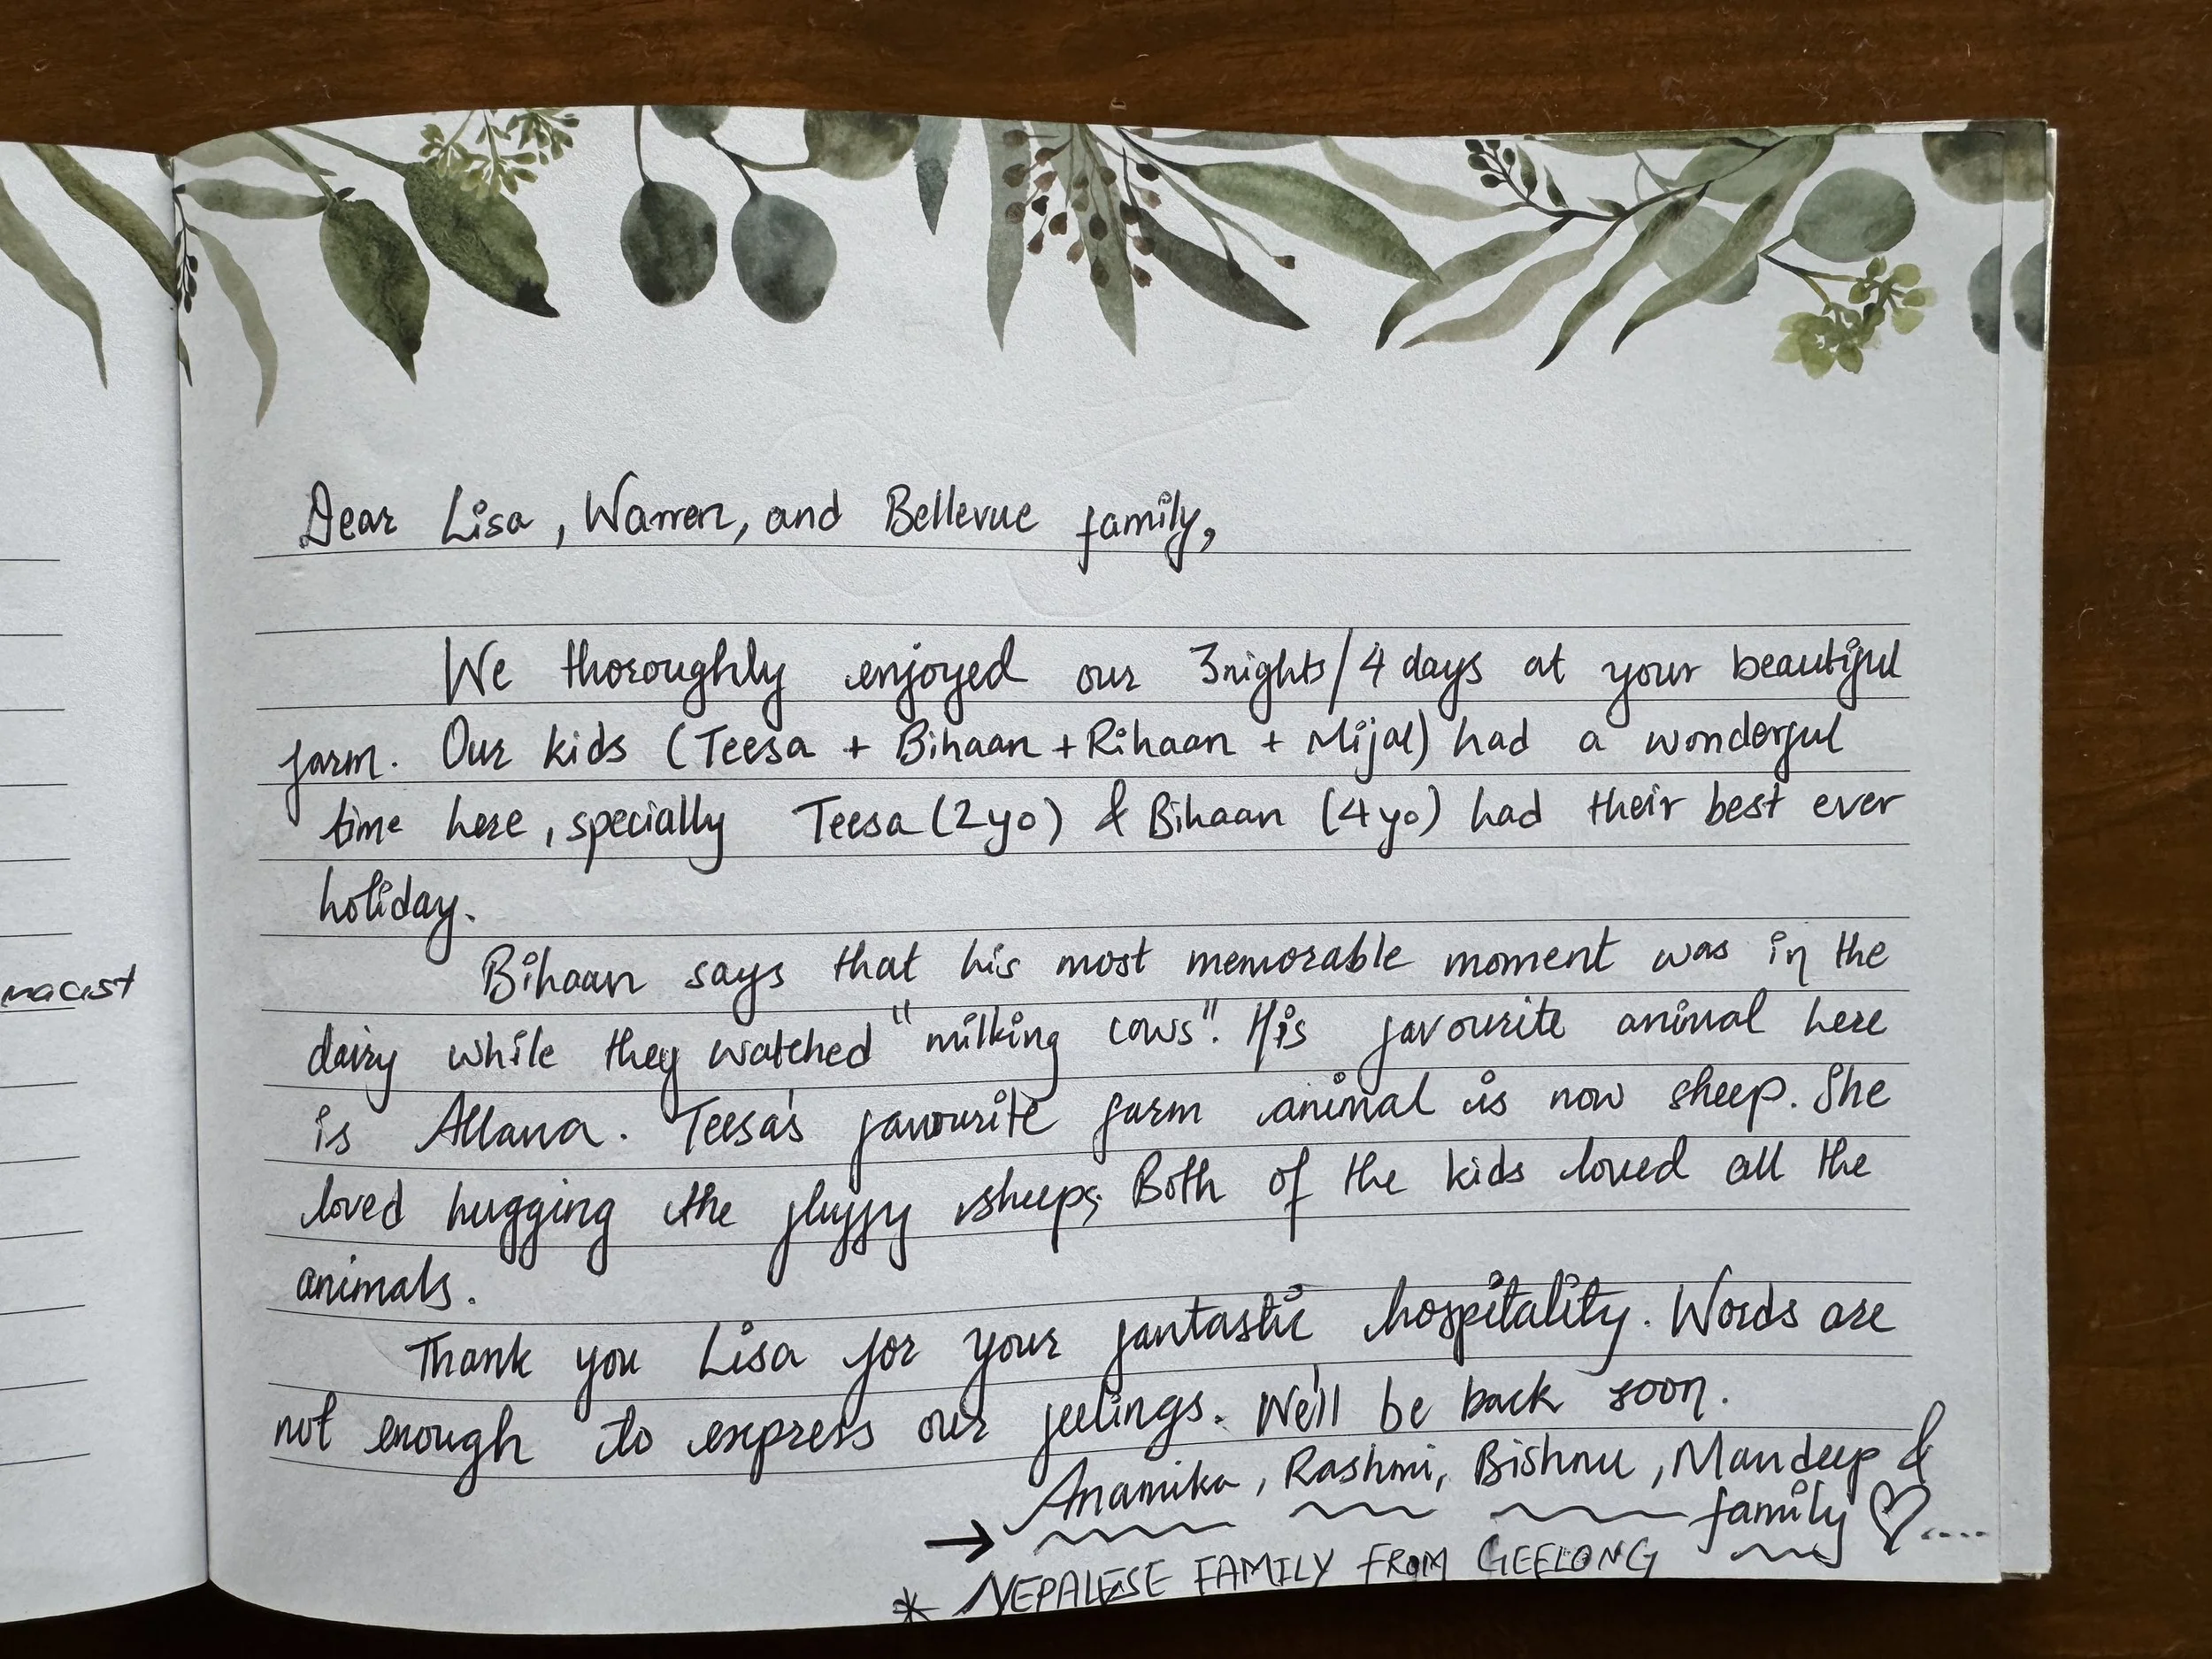 Dear Lisa, Warren, and Bellevue family,
We thoroughly enjoyed our 3nights/4 days at your beautiful
farm. Our kids (Teesa + Bihaan + Rihaan + Mijal) had a wonderful
time here, specially Teesa (2yo) & Bihaan (4yo) had their best ever
holiday.
Bihaan says that his most memorable moment was in the
dairy while they watched "milking cows". His favourite animal here
is Allana. Teesa's favourite farm animal is now sheep. She
loved hugging the fluffy sheeps; Both of the kids loved all the
animals.
Thank you Lisa for your fantastic hospitality. Words are
not enough to express our feelings. We'll be back soon.
→ Anamika, Rashmi, Bishnu, Mandeep &
family ♡....
* NEPALESE FAMILY FROM GEELONG